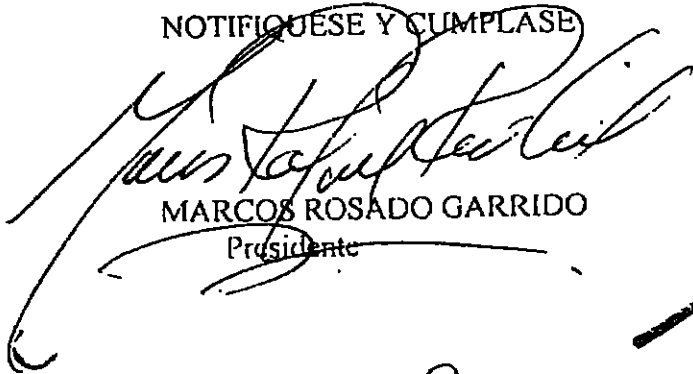 NOTIFIQUESE Y CUMPLASE
MARCOS ROSADO GARRIDO
Presidente